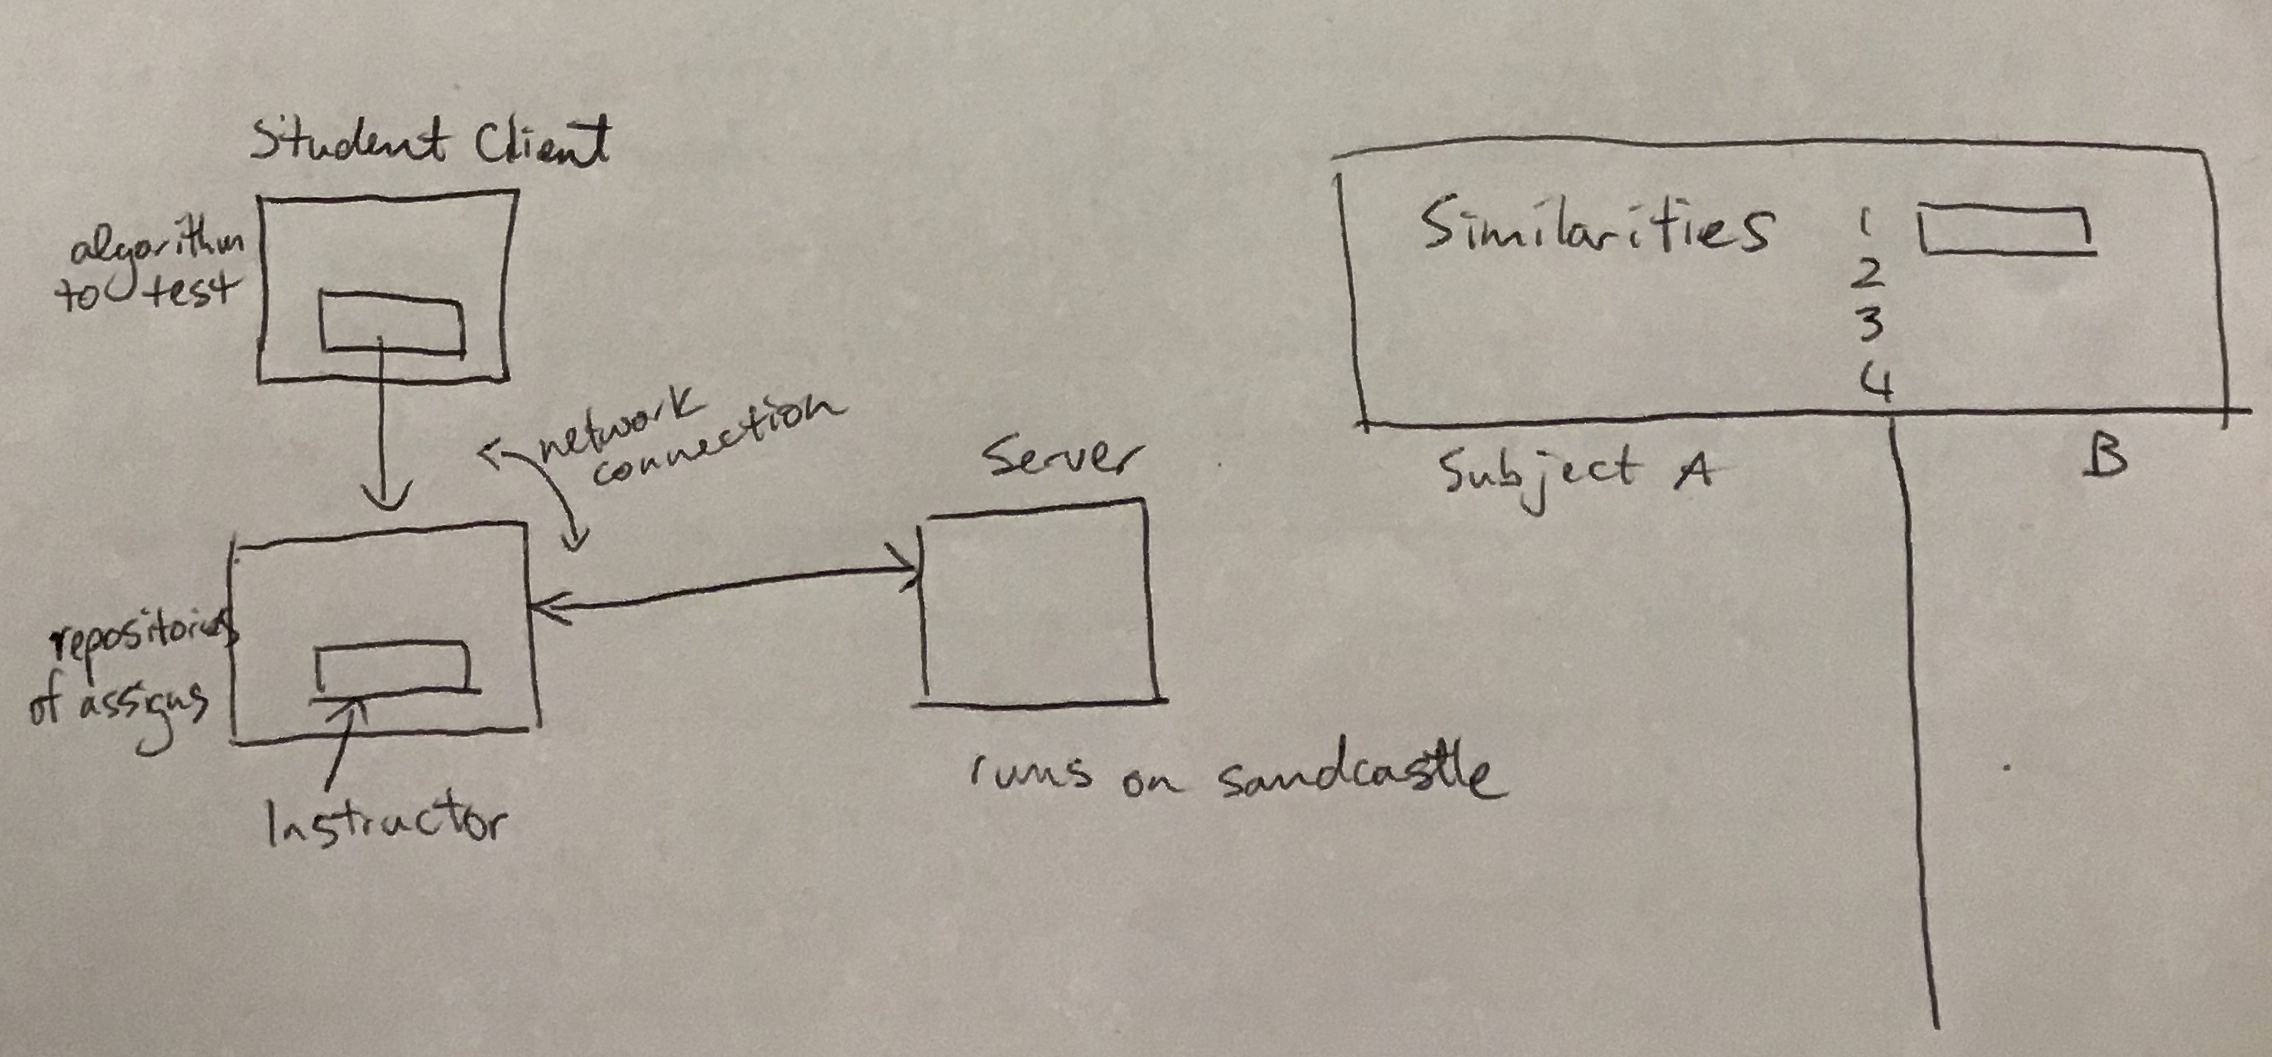 Student Client
algorithm
to test
network
connection
Server
repositories
of assigns
Instructor
runs on sandcastle
Similarities 1
2
3
4
Subject A B